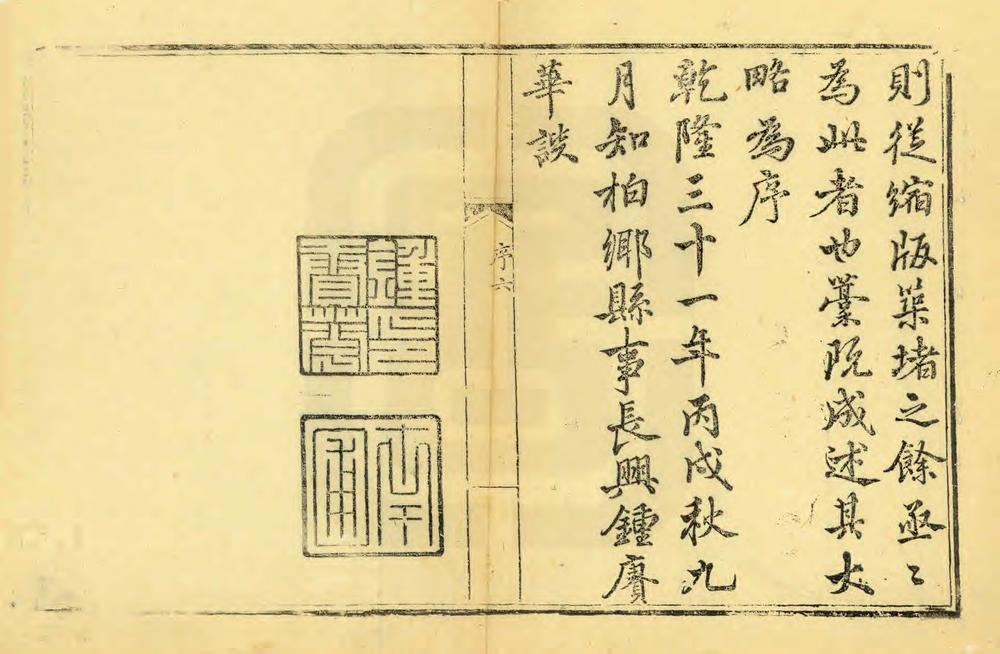 則從縮版築堵之餘亟〻
為此者也藁既成述其大
略為序
乾隆三十一年丙戌秋九
月知柏鄉縣事長興鍾賡
華譔
序 六
鍾印賡華